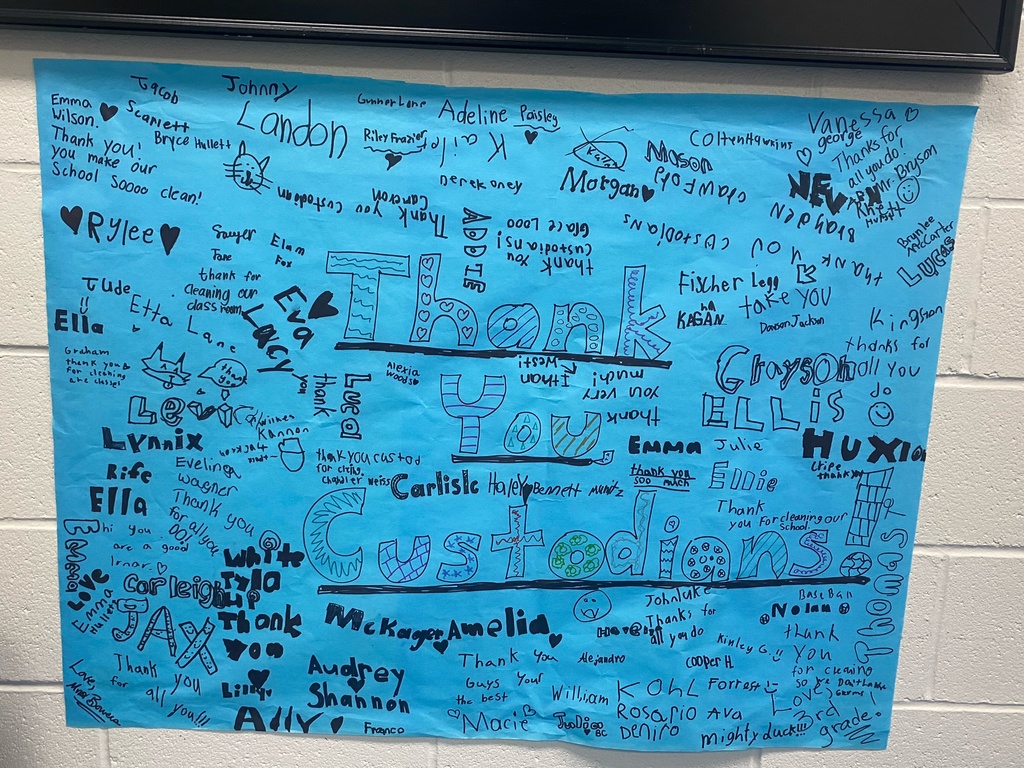 Jacob
Johnny
Emma
Wilson.
Thank you!
you make our
School Soooo clean!
Scarlett
Bryce Hullett
Landon
Gunner Lane
Riley Frazier
Kaile
Adeline
Paisley
Derek oney
Thank you
Cameron
custodian
Morgan
Mason
Crawford
Colten Hawkins
Vanessa
george
Thanks for
all you do!
Mr. Bryson
NEVAEH
Rylee
Sawyer
Elam
Fox
thank for
cleaning our
class room
ADDIE
thank you
Custodians!
Grace Looo
thank
you
custodians
Brunlee
McCarter
LUCAS
Jude
Etta Lane
Eva
Lacy
Thank
Fischer Legg
KAGAN
take YOU
Dawson Jackson
Kingston
thanks for
all you
do
Ella
Graham
thank you
for cleaning
are classes!
thank
you
Lucal
Alexia
Woods
West!
thank
you very
much!
You
Grayson
ELLIS
Levi
Wilkes
Kannon
Lynnix
thank you custod
for cleing.
chandler Weiss
EMMA
Julie
HUXlo
Rife
Evelinea
Wagner
Thank you
for all you
DO!
Carlisle
Haley
Bennett
muntz
thank you
soo much
Ellie
Thank
you for cleaning our
school.
Ella
hi you
are a good
Custodians!
Thomas
Emma
LOVE
Emma
Hullett
Corleigh
White
Tyla
JAX
Thank
You
McKager
Amelia
Johnluke
Thanks for
all you do
Baseball
Nolan
thank
you
for cleaning
Kinley G.
Thank
you
for
all you!!!
Love,
Audrey
Shannon
Thank You
Guys your
the best
Alejandro
Cooper H.
Lilly
Ally
Franco
Macie
William
Kohl
Forrest
Rosario
Ava
Deniro
mighty duck!!!
Love,
3rd
grade!